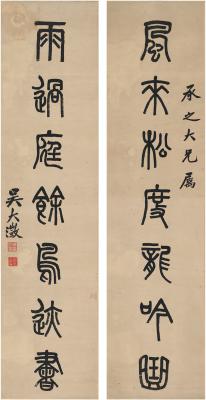 承之大兄屬
風來松度龍吟曲
雨過庭餘鳥迹書
吳大澂